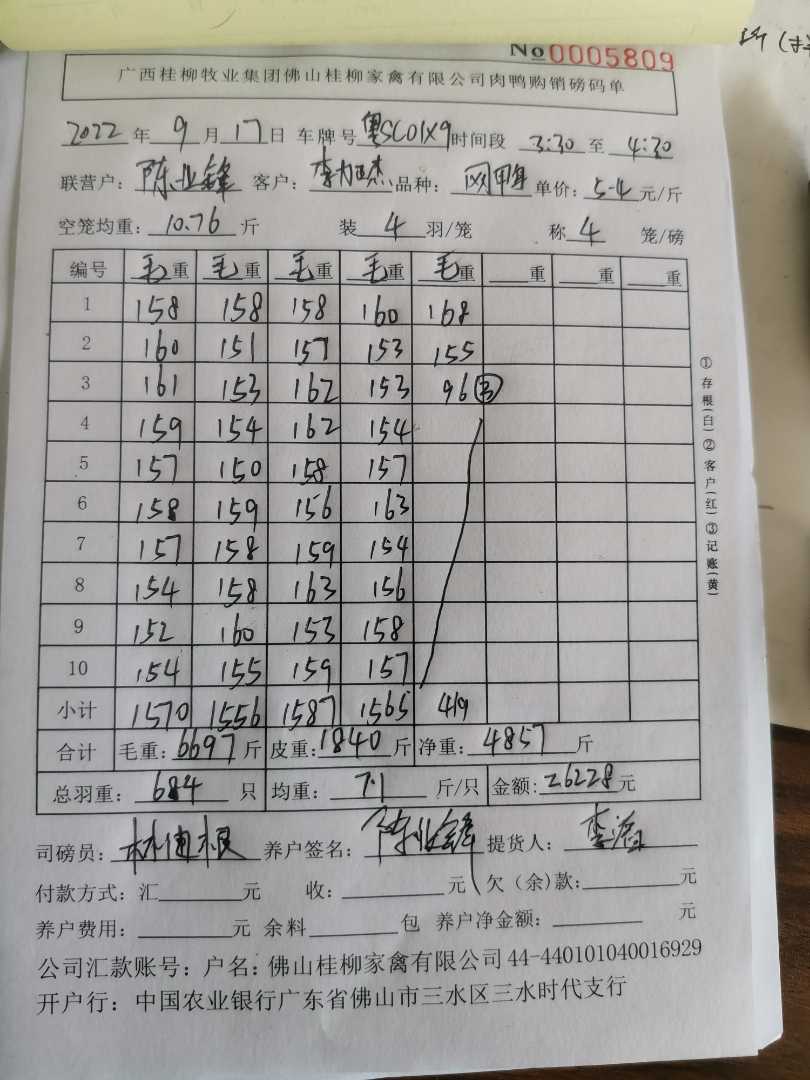 No 0005809
广西桂柳牧业集团佛山桂柳家禽有限公司肉鸭购销磅码单
2022 年 9 月 17 日 车牌号 粤SC01X9 时间段 3:30 至 4:30
联营户: 陈业锋 客户: 李 杰 品种: 网甲 单价: 5.4 元/斤
空笼均重: 10.76 斤 装 4 羽/笼 称 4 笼/磅
编号 毛重 毛重 毛重 毛重 毛重 重 重 重
1 158 158 158 160 168
2 160 151 157 153 155
3 161 153 162 153 96
4 159 154 162 154
5 157 150 158 157
6 158 159 156 163
7 157 158 159 154
8 154 158 163 156
9 152 160 153 158
10 154 155 159 157
小计 1570 1556 1587 1565 419
合计 毛重: 6697 斤 皮重: 1840 斤 净重: 4857 斤
总羽重: 684 只 均重: 7.1 斤/只 金额: 26228 元
司磅员: 林 根 养户签名: 陈业锋 提货人: 李
付款方式: 汇 元 收: 元 欠(余)款: 元
养户费用: 元 余料 包 养户净金额: 元
公司汇款账号: 户名: 佛山桂柳家禽有限公司 44-440101040016929
开户行: 中国农业银行广东省佛山市三水区三水时代支行
①存根(白)②客户(红)③记账(黄)